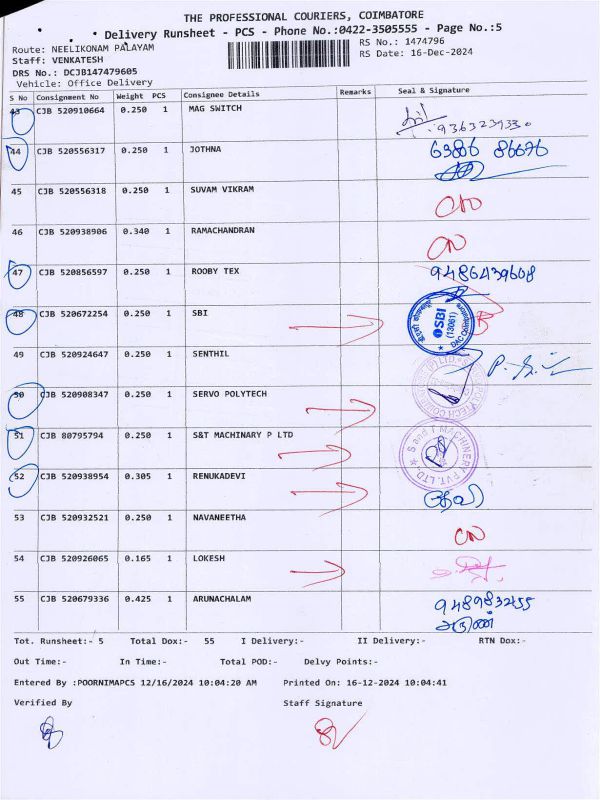 THE PROFESSIONAL COURIERS, COIMBATORE
Delivery Runsheet - PCS - Phone No.:0422-3505555 - Page No.:5
Route: NEELIKONAM PALAYAM
RS No.: 1474796
Staff: VENKATESH
RS Date: 16-Dec-2024
DRS No.: DCJB147479605
Vehicle: Office Delivery
S No Consignment No Weight PCS Consignee Details Remarks Seal & Signature
43 CJB 520910664 0.250 1 MAG SWITCH
44 CJB 520556317 0.250 1 JOTHNA
45 CJB 520556318 0.250 1 SUVAM VIKRAM
46 CJB 520938906 0.340 1 RAMACHANDRAN CN
47 CJB 520856597 0.250 1 ROOBY TEX 9486439608
48 CJB 520672254 0.250 1 SBI SBI (13061)
49 CJB 520924647 0.250 1 SENTHIL
50 CJB 520908347 0.250 1 SERVO POLYTECH
51 CJB 80795794 0.250 1 S&T MACHINARY P LTD S and T MACHINERY PVT. LTD.
52 CJB 520938954 0.305 1 RENUKADEVI தேவி
53 CJB 520932521 0.250 1 NAVANEETHA CN
54 CJB 520926065 0.165 1 LOKESH
55 CJB 520679336 0.425 1 ARUNACHALAM
அருண்
Tot. Runsheet:- 5 Total Dox:- 55 I Delivery:- II Delivery:- RTN Dox:-
Out Time:- In Time:- Total POD:- Delvy Points:-
Entered By :POORNIMAPCS 12/16/2024 10:04:20 AM Printed On: 16-12-2024 10:04:41
Verified By Staff Signature